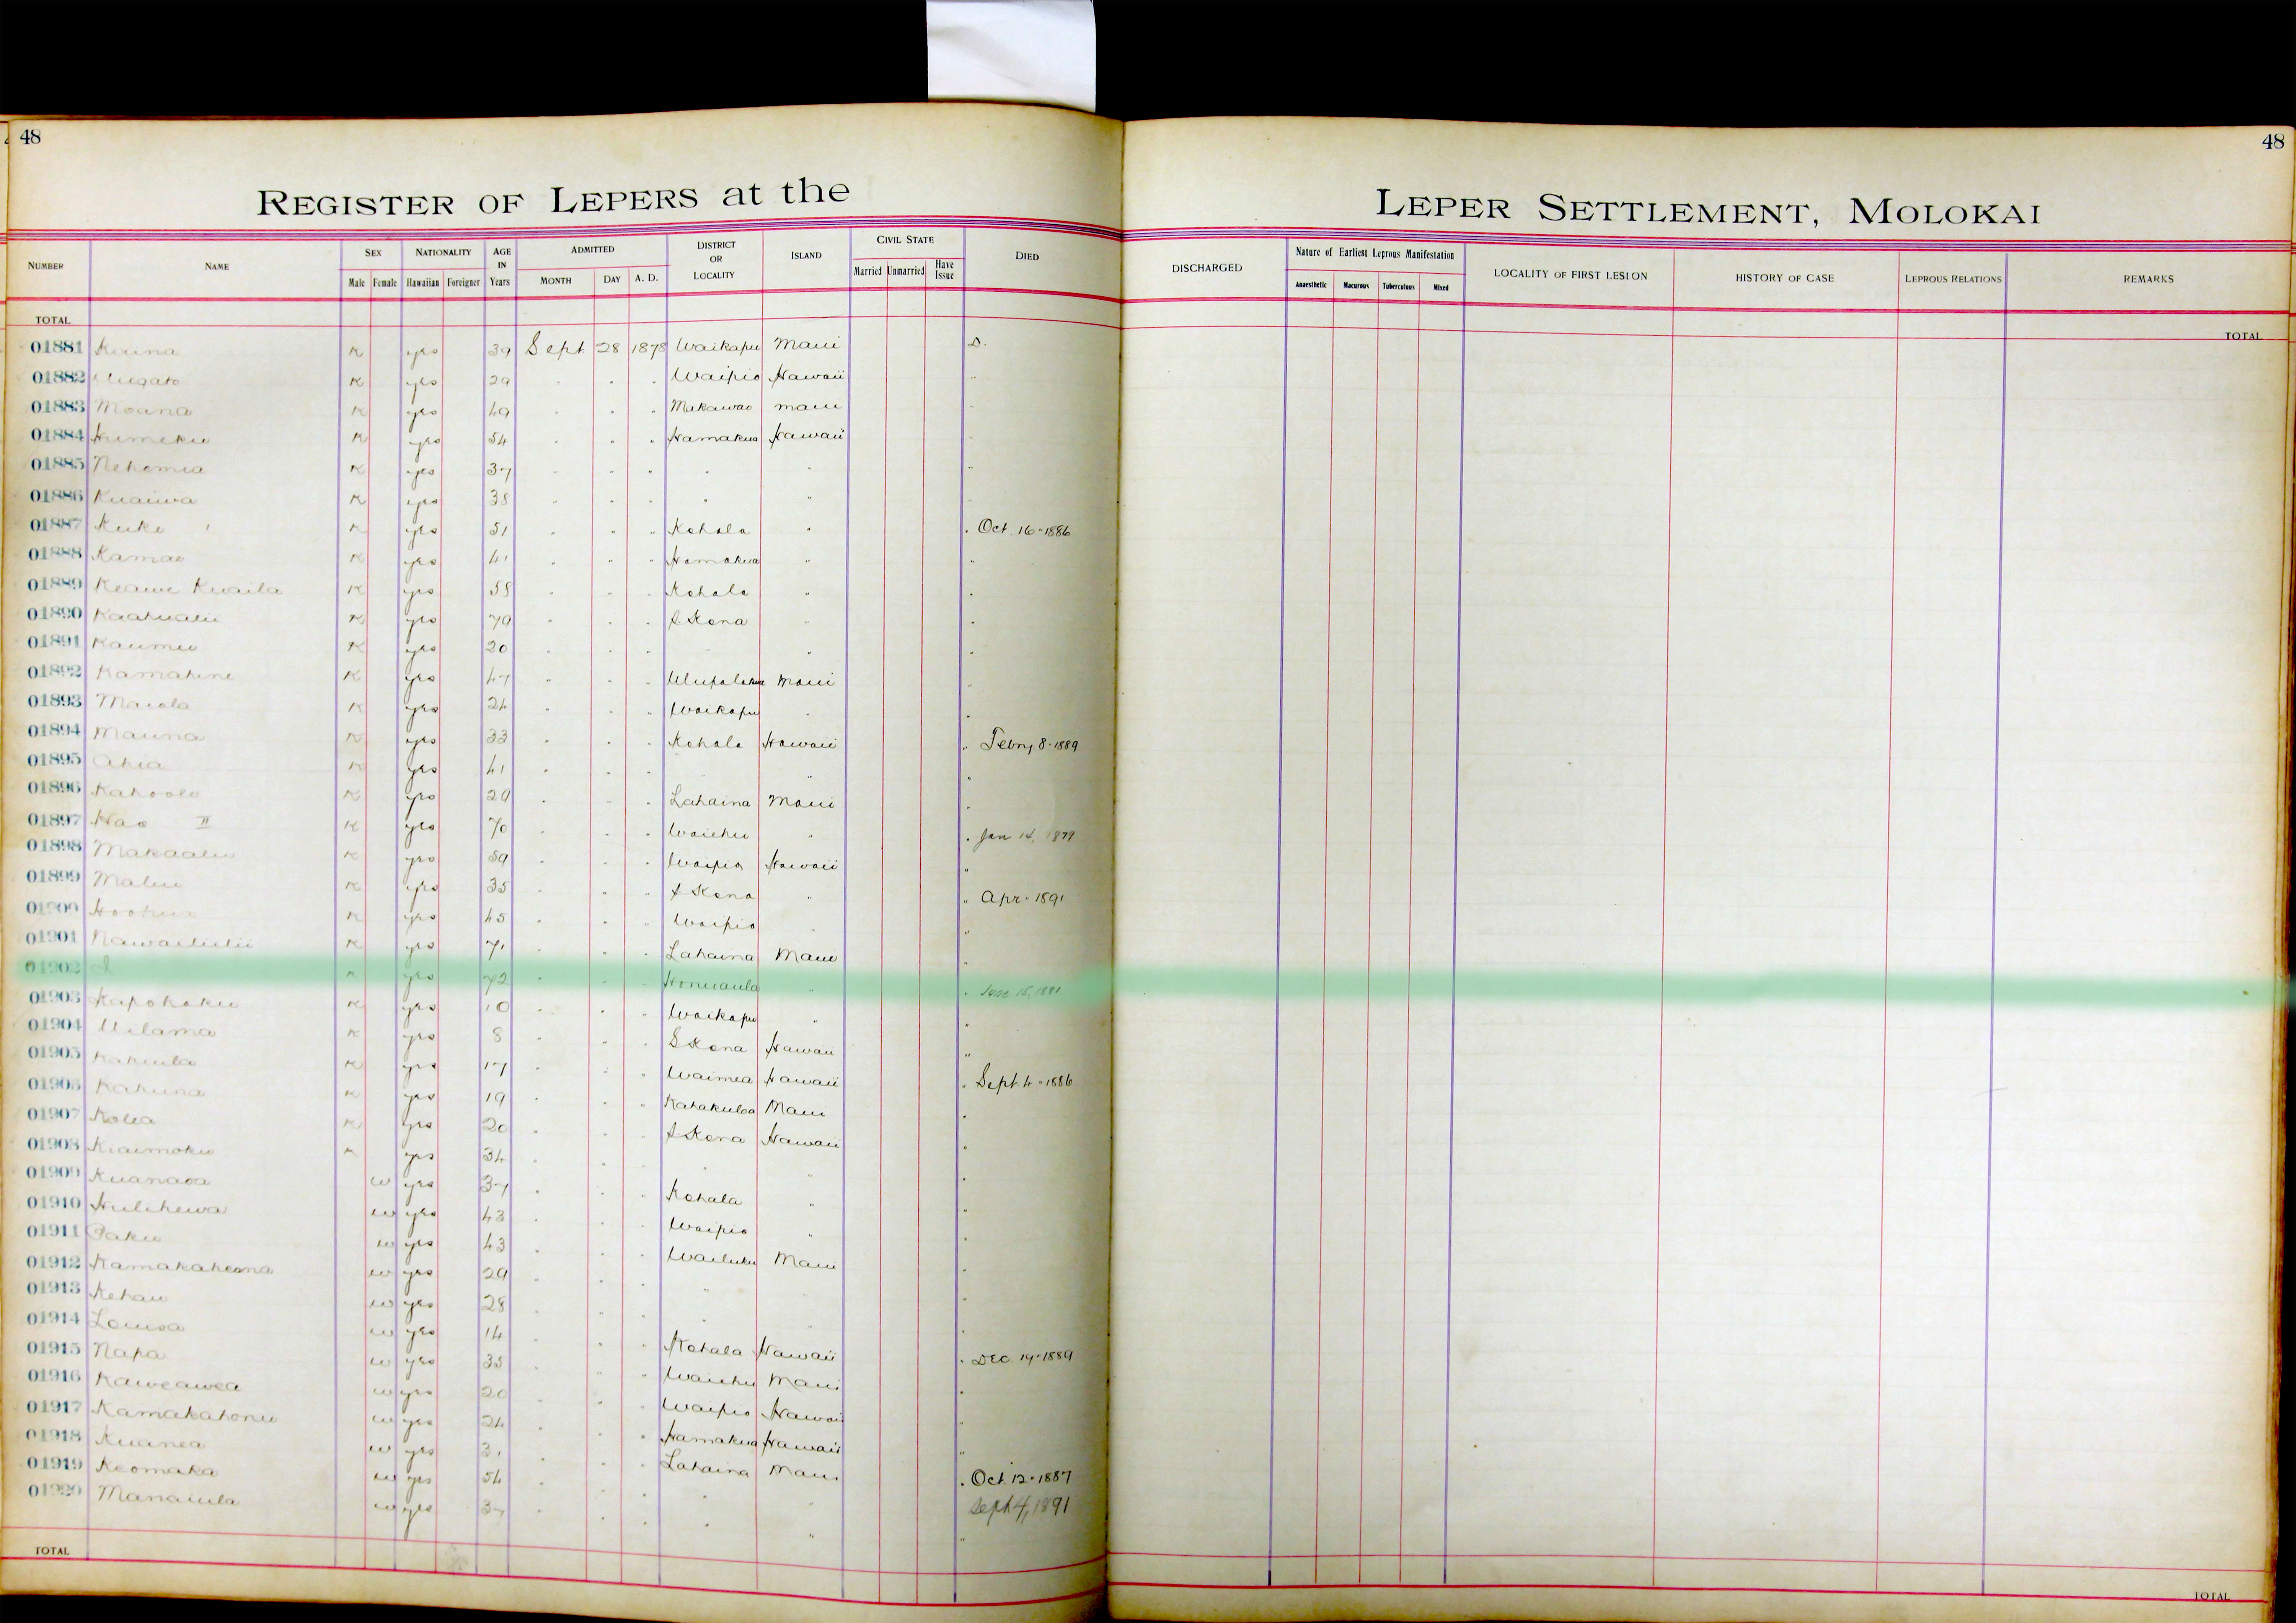 48
48
REGISTER OF LEPERS at the
LEPER SETTLEMENT, MOLOKAI
NUMBER NAME SEX NATIONALITY AGE IN Years ADMITTED DISTRICT OR LOCALITY ISLAND CIVIL STATE DIED
Male Female Hawaiian Foreigner MONTH DAY A. D. Married Unmarried Have Issue
DISCHARGED Nature of Earliest Leprous Manifestation LOCALITY OF FIRST LESION HISTORY OF CASE LEPROUS RELATIONS REMARKS
Anaesthetic Macurous Tuberculous Mixed
TOTAL
TOTAL
01881 K yes 39 Sept 28 1878 Waikapu Maui D.
01882 K yes 29 . . . Waipio Hawaii "
01883 Moana K yes 49 . . . Makawao Maui "
01884 K yes 54 . . . Hamakua Hawaii
01885 Nehemia K yes 37 " " " " " "
01886 Kuaiwa K yes 38 " " " " "
01887 Kuke K yes 51 " " " Kohala " " Oct. 16-1886
01888 Kamae K yes 41 " " " Hamakua " "
01889 Keawe Kuaila K yes 58 " " " Kohala " "
01890 Kaahualii K yes 79 " " " Kona " "
01891 Kaumu K yes 20 " " " " " "
01892 Kamahine K yes 47 " " " Ulupalakua Maui "
01893 Maiola K yes 24 " " " Waikapu " "
01894 Mauna K yes 33 " " " Kohala Hawaii " Febry 8-1889
01895 Ahia K yes 41 " " " " "
01896 Kahoole K yes 29 " " " Lahaina Maui "
01897 Hao II K yes 70 " " " Waiehu " " Jan 14, 1879
01898 Makaalu K yes 59 " " " Waipio Hawaii "
01899 Malu K yes 35 " " " Kona " " Apr. 1891
01900 K yes 45 " " " Waipio " "
01901 Nawailiilii K yes 71 " " " Lahaina Maui "
01902 I K yes 72 " " " Honuaula " " June 15, 1881
01903 Kapohaku K yes 10 " " " Waikapu " "
01904 Uilama K yes 8 " " " S Kona Hawaii "
01905 Kahiula K yes 17 " " " Waimea Hawaii " Sept. 4-1886
01906 Kahuna K yes 19 " " " Kahakuloa Maui "
01907 Kolea K yes 20 " " " Kona Hawaii "
01908 Kiaimoku K yes 34 " " " " "
01909 Kuanaoa w yes 37 " " " Kohala " "
01910 Hulihewa w yes 43 " " " Waipio " "
01911 Paku w yes 43 " " " Wailuku Maui "
01912 w yes 29 " " " " "
01913 Kehau w yes 28 " " " "
01914 Louisa w yes 14 " " " Kohala Hawaii " Dec. 19-1889
01915 Napa w yes 35 " " " Waiehu Maui "
01916 Kaweawea w yes 20 " " " Waipio Hawaii "
01917 Kamakahonu w yes 24 " " " Hamakua Hawaii "
01918 Kuanea w yes 31 " " " Lahaina Maui " Oct. 12-1887
01919 Keomaka w yes 54 " " " " " Sept 4, 1891
01920 Manaiula w yes 37 " " " " "
TOTAL
TOTAL